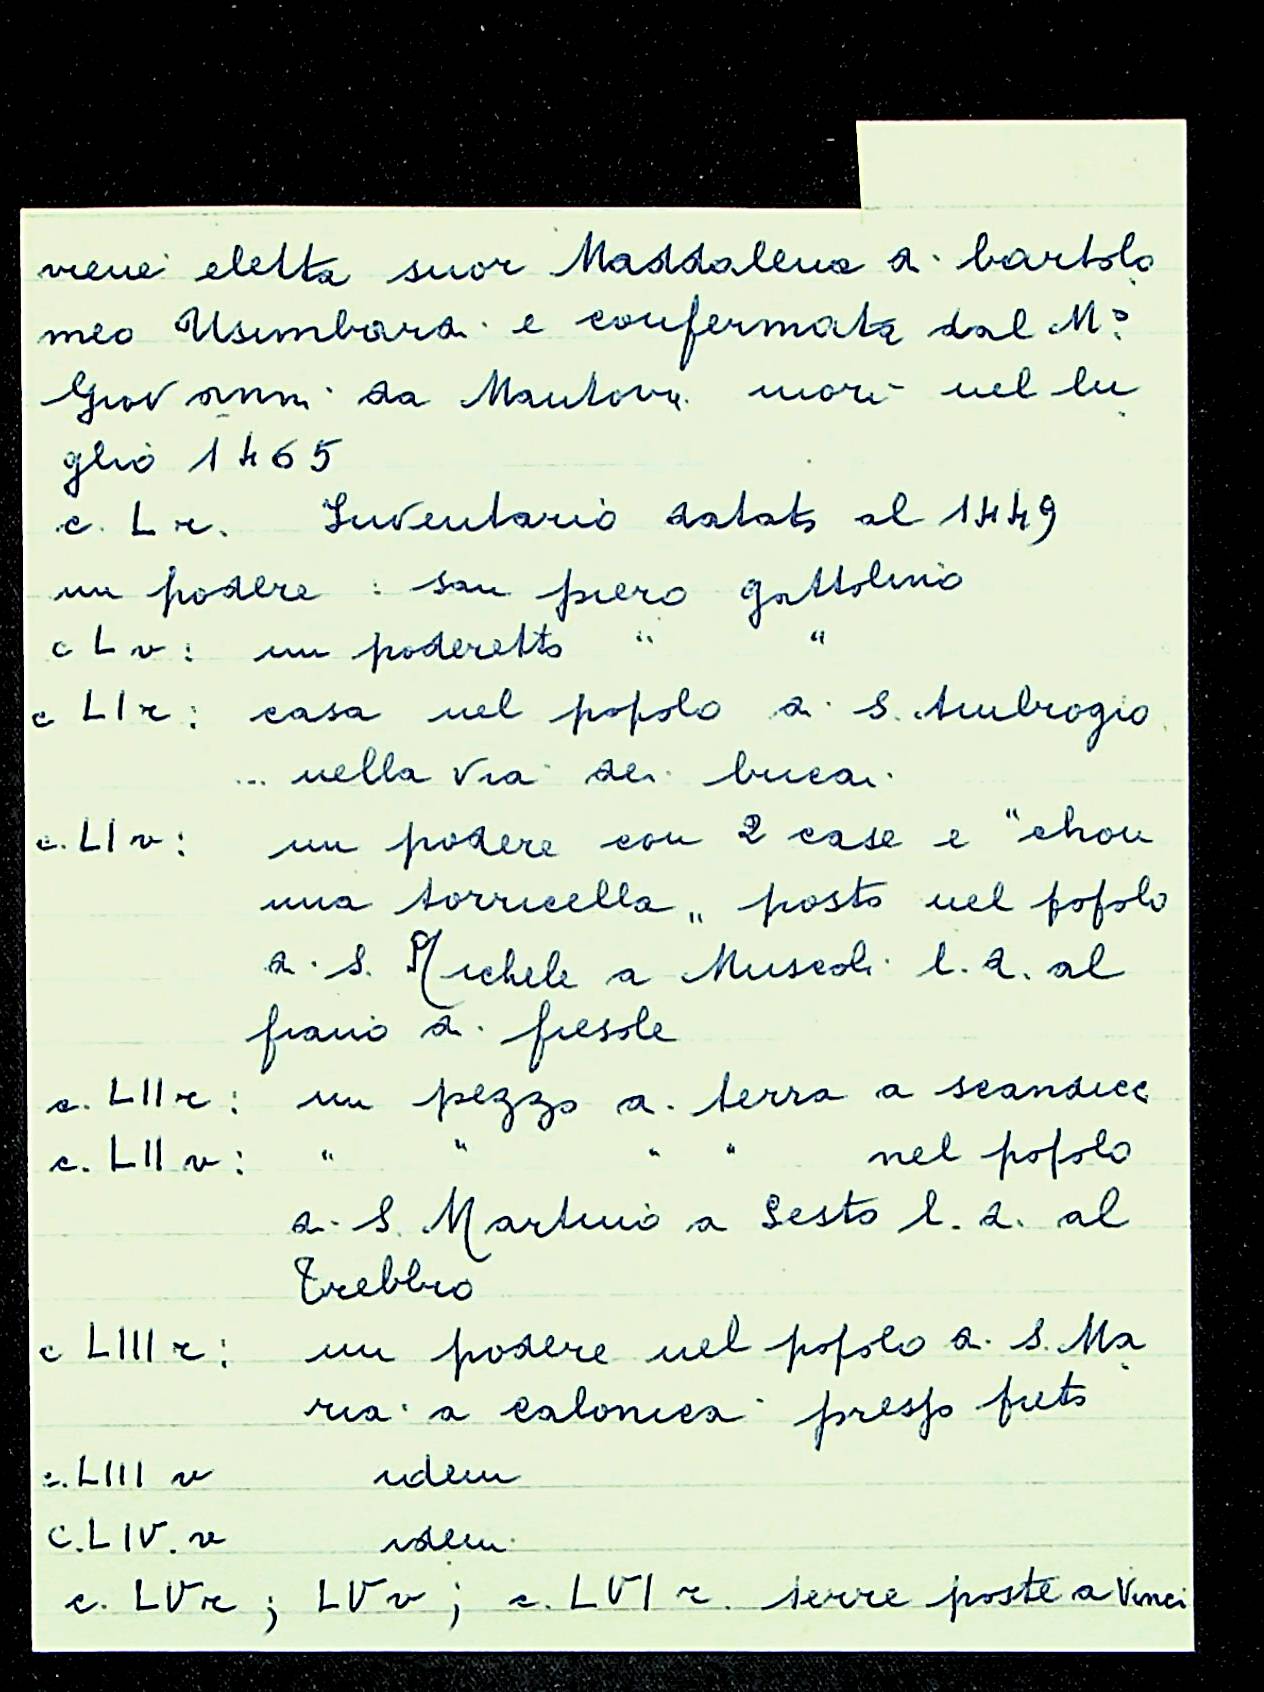 viene eletta suor Maddalena di bartolo
meo Usimbardi e confermata dal M°
Giovanni da Mantova. morì nel lu
glio 1465
c. L r. Inventario datato al 1449
un podere : san piero gattolino
c L v : un poderetto " "
c LI r : casa nel popolo di S. Ambrogio
... nella via dei bucai.
c. LI v : un podere con 2 case e "chon
una torricella" posto nel popolo
di S. Michele a Muscoli l. d. al
piano di fiesole
c. LII r : un pezzo di terra a scandicci
c. LII v : " " " " nel popolo
di S. Martino a Sesto l. d. al
Trebbio
c LIII r : un podere nel popolo di S. Ma
ria a Calonica presso prato
c. LIII v idem
C. LIV. v idem
c. LV r ; LV v ; c. LVI r. terre poste a Vinci